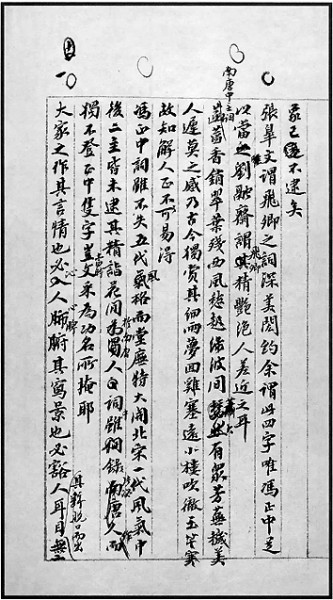 象已不逮矣
張皋文謂飛卿之詞深美閎約余謂此四字唯馮正中足
以當之劉融齋謂飛卿精艷絕人差近之耳
南唐中主詞菡萏香銷翠葉殘西風愁起綠波間大有衆芳蕪穢美
人遲莫之感乃古今獨賞其細雨夢回雞塞遠小樓吹徹玉笙寒
故知解人正不易得
馮正中詞雖不失五代風格而堂廡特大開北宋一代風氣中
後二主皆未逮其精詣花間於南唐人詞中雖錄張泌作而
獨不登正中隻字豈當時文采為功名所掩耶
大家之作其言情也必沁人心脾其寫景也必豁人耳目其辭脫口而出無